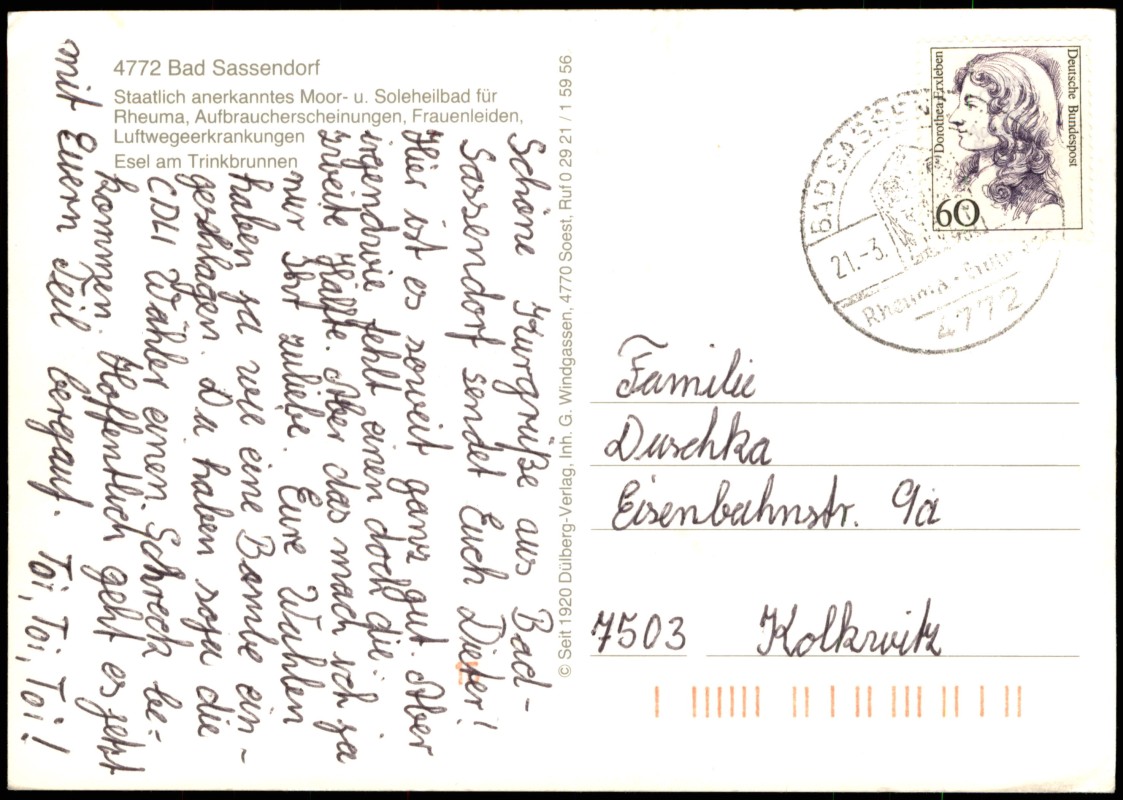 4772 Bad Sassendorf
Staatlich anerkanntes Moor- u. Soleheilbad für
Rheuma, Aufbraucherscheinungen, Frauenleiden,
Luftwegeerkrankungen
Esel am Trinkbrunnen
© Seit 1920 Dülberg-Verlag, Inh. G. Windgassen, 4770 Soest, Ruf 0 29 21 / 1 59 56
Schöne Kurgrüße aus Bad-
Sassendorf sendet Euch Dieter!
Hier ist es soweit ganz gut. Aber
irgendwie fehlt einen doch die
zweite Hälfte. Aber das mach ich ja
nur Ihr zuliebe. Eure Wahlen
haben ja wie eine Bombe ein-
geschlagen. Da haben soga die
CDU Wähler einen Schreck be=
kommen. Hoffentlich geht es jetzt
mit Euern Teil bergauf. Toi, Toi, Toi!
Deutsche Bundespost
Dorothea Erxleben
60
BAD SASSEN
21.-3.
Rheuma
4772
Familie
Duschka
Eisenbahnstr. 9a
7503 Kolkwitz